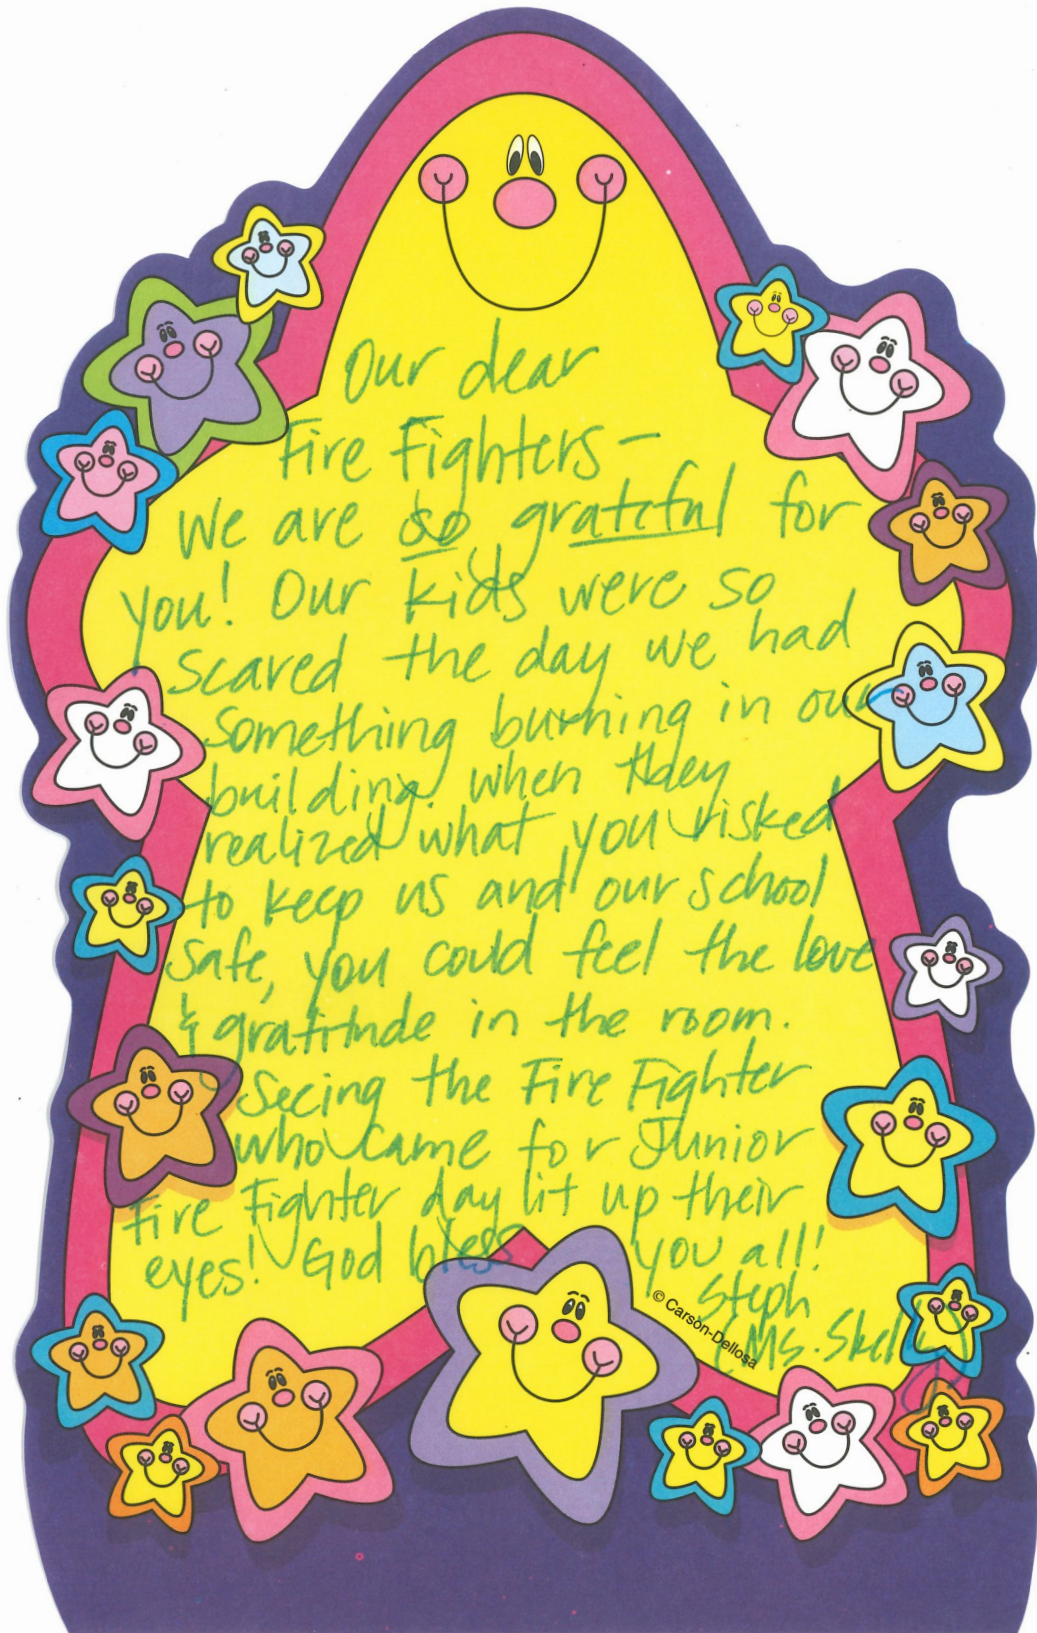 Our dear
Fire Fighters-
We are so grateful for
you! Our kids were so
scared the day we had
something burning in our
building. When they
realized what you risked
to keep us and our school
safe, you could feel the love
& gratitude in the room.
Seeing the Fire Fighter
who came for Junior
Fire Fighter day lit up their
eyes! God bless you all!
Steph
(Ms. Skelly)
© Carson-Dellosa